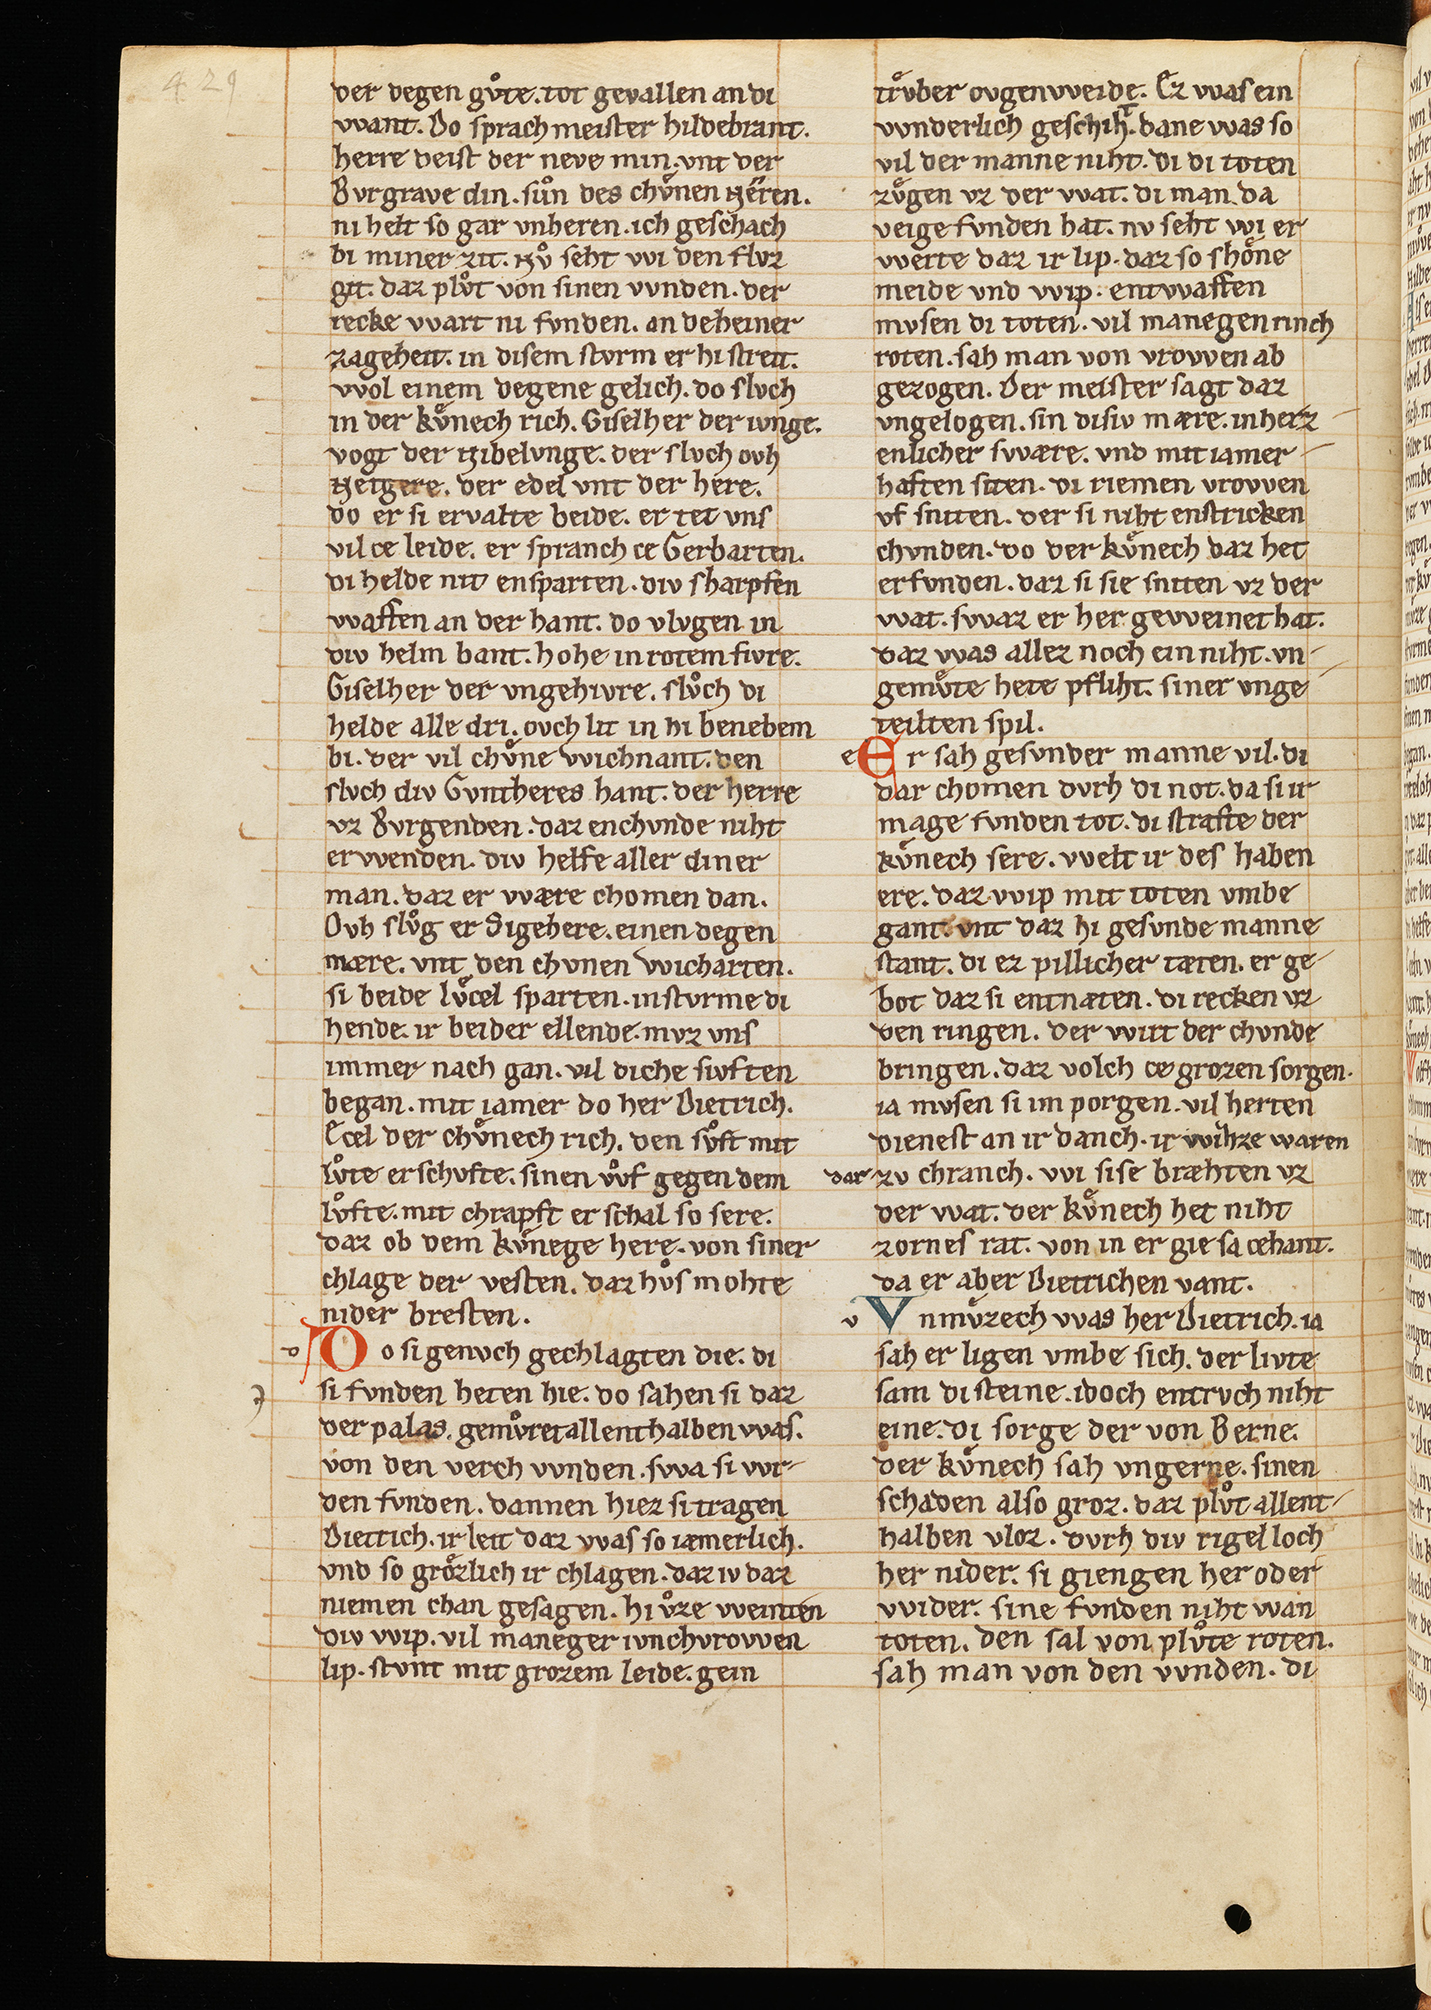 429
der degen gůte. tot gevallen an di
want. Do sprach meister hildebrant.
herre deist der neve min. vnt der
Bvrgrave din. sůn des chv̊nen Neren.
ni helt so gar vnheren. ich geschach
bi miner zit. Nv̊ seht wi den flvz
git. daz plv̊t von sinen wnden. der
recke wart ni fvnden. an deheiner
zageheit. in disem stvrm er hi streit.
wol einem degene gelich. do slvch
in der kv̊nech rich. Giselher der ivnge.
vogt der Nibelvnge. der slvch ovh
Neitgere. der edel vnt der here.
do er si ervalte beide. er tet vns
vil ce leide. er spranch ce Gerbarten.
di helde nit ensparten. div sharpfen
waffen an der hant. do vlvgen in
div helm bant. hohe in rotem fivre.
Giselher der vngehivre. slv̊ch di
helde alle dri. ovch lit in hi benebem
bi. der vil chv̊ne wichnant. den
slvch div Gvntheres hant. der herre
vz Bvrgenden. daz enchvnde niht
erwenden. div helfe aller diner
man. daz er wære chomen dan.
Ovh slv̊g er Sigehere. einen degen
mære. vnt den chvnen wicharten.
si beide lv̊cel sparten. in stvrme di
hende. ir beider ellende. mvz vns
immer nach gan. vil diche sivften
began. mit iamer do her Dietrich.
Ecel der chv̊nech rich. den sv̊ft mit
lv̊te erschvfte. sinen wͦf gegen dem
lv̊fte. mit chrapft er schal so sere.
daz ob dem kv̊nege here. von siner
chlage der vesten. daz hv̊s mohte
nider bresten.
d Do si genvch gechlagten die. di
si fvnden heten hie. do sahen si daz
der palas. gemv̊ret allenthalben was.
von den verch wnden. swa si wr-
den fvnden. dannen hiez si tragen
Dietrich. ir leit daz was so iæmerlich.
vnd so grózlich ir chlagen. daz iv daz
niemen chan gesagen. hi v̊ze weinten
div wip. vil maneger ivnchvrowen
lip. stvnt mit grozem leide. gein
trv̊ber ovgenweide. Ez was ein
wnderlich geschiht. dane was so
vil der manne niht. di di toten
zv̊gen vz der wat. di man da
veige fvnden hat. nv seht wi er
werte daz ir lip. daz so shóne
meide vnd wip. entwaffen
mvsen di toten. vil manegen rinch
roten. sah man von vrowen ab
gezogen. Der meister sagt daz
vngelogen. sin disiv mære. in herz
enlicher swære. vnd mit iamer
haften siten. di riemen vrowen
vf sniten. der si niht enstricken
chvnden. do der kv̊nech daz het
erfvnden. daz si sie sniten vz der
wat. swaz er her geweinet hat.
daz was allez noch ein niht. vn-
gemv̊te hete pfliht. siner vnge
teilten spil.
e Er sah gesvnder manne vil. di
dar chomen dvrh di not. da si ir
mage fvnden tot. di strafte der
kv̊nech sere. welt ir des haben
ere. daz wip mit toten vmbe
gant. vnt daz hi gesvnde manne
stant. di ez pillicher tæten. er ge-
bot daz si entnæten. di recken vz
den ringen. der wirt der chvnde
bringen. daz volch ce grozen sorgen.
ia mvsen si im porgen. vil herten
dienest an ir danch. ir wihze waren
dar zv chranch. wi si se bræhten vz
der wat. der kv̊nech het niht
zornes rat. von in er gie sa cehant.
da er aber Dietrichen vant.
v Vnmv̊zech was her Dietrich. ia
sah er ligen vmbe sich. der livte
sam di steine. idoch entrvch niht
eine. di sorge der von Berne.
der kv̊nech sah vngerne. sinen
schaden also groz. daz plv̊t allent-
halben vloz. dvrh div rigel loch
her nider. si giengen her oder
wider. sine fvnden niht wan
toten. den sal von plv̊te roten.
sah man von den wnden. di